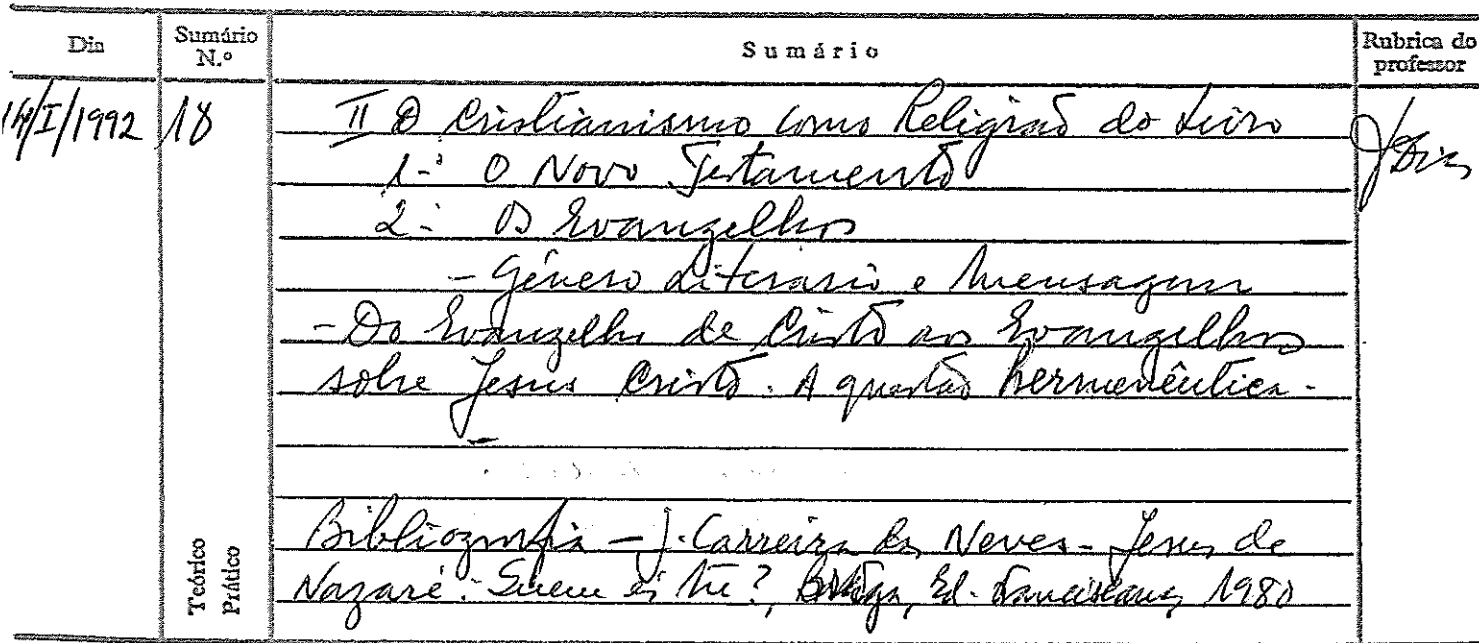 Dia Sumário N.º Sumário Rubrica do professor
14/I/1992 18 II O Cristianismo como Religião do Livro
1.º O Novo Testamento
2.º Os Evangelhos
- Género Literário e Mensagem
- Do Evangelho de Cristo aos Evangelhos
sobre Jesus Cristo. A questão hermenêutica.
Bibliografia - J. Carreira das Neves - Jesus de
Nazaré. Quem és tu?, Braga, Ed. Franciscana, 1980
Teórico
Prático